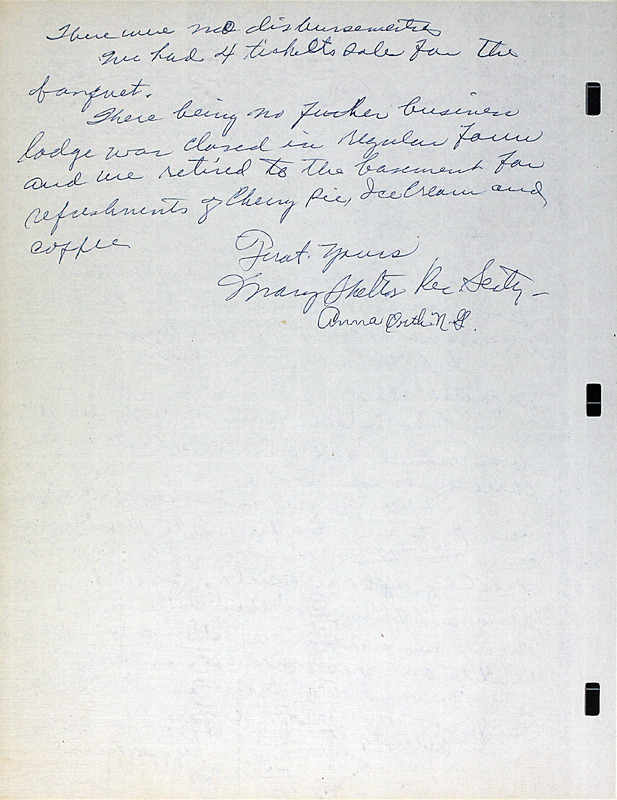 There were no disbursements
We had 4 tickets sale for the
banquet.
There being no furher business
lodge was closed in regular form
and we retired to the basement for
refreshments of Cherry Pie, Ice Cream and
coffee
Frat. Yours
Mary Shelton Rec Secty-
Anna Orth N.G.